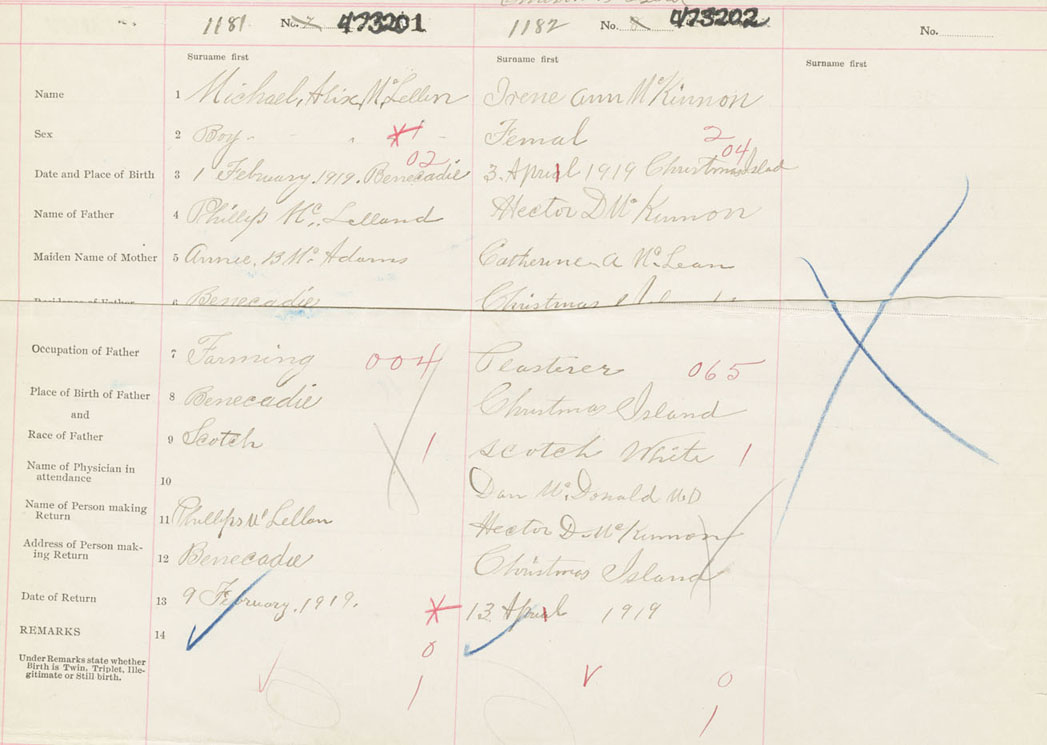 1181 No. 2 473201 1182 No. 8 473202 No.
Surname first Surname first Surname first
Name 1 Michael, Alix, McLellen Irene ann McKinnon
Sex 2 Boy 1 Femal 2
02 04
Date and Place of Birth 3 1 February. 1919. Benecadie 3. April 1919 Christmas Island
Name of Father 4 Phillips Mc. Lelland Hector D McKinnon
Maiden Name of Mother 5 Annie, B. Mc Adams Catherine A McLean
Residence of Father 6 Benecadie Christmas Island
Occupation of Father 7 Farming 004 Plasterer 065
Place of Birth of Father 8 Benecadie Christmas Island
and
Race of Father 9 Scotch 1 Scotch White 1
Name of Physician in
attendance 10 Dan McDonald MD
Name of Person making
Return 11 Phillips McLellan Hector D. McKinnon
Address of Person mak-
ing Return 12 Benecadie Christmas Island
Date of Return 13 9 February. 1919. 13 April 1919
REMARKS 14
0
Under Remarks state whether
Birth is Twin, Triplet, Ille-
gitimate or Still birth.
1 0
1